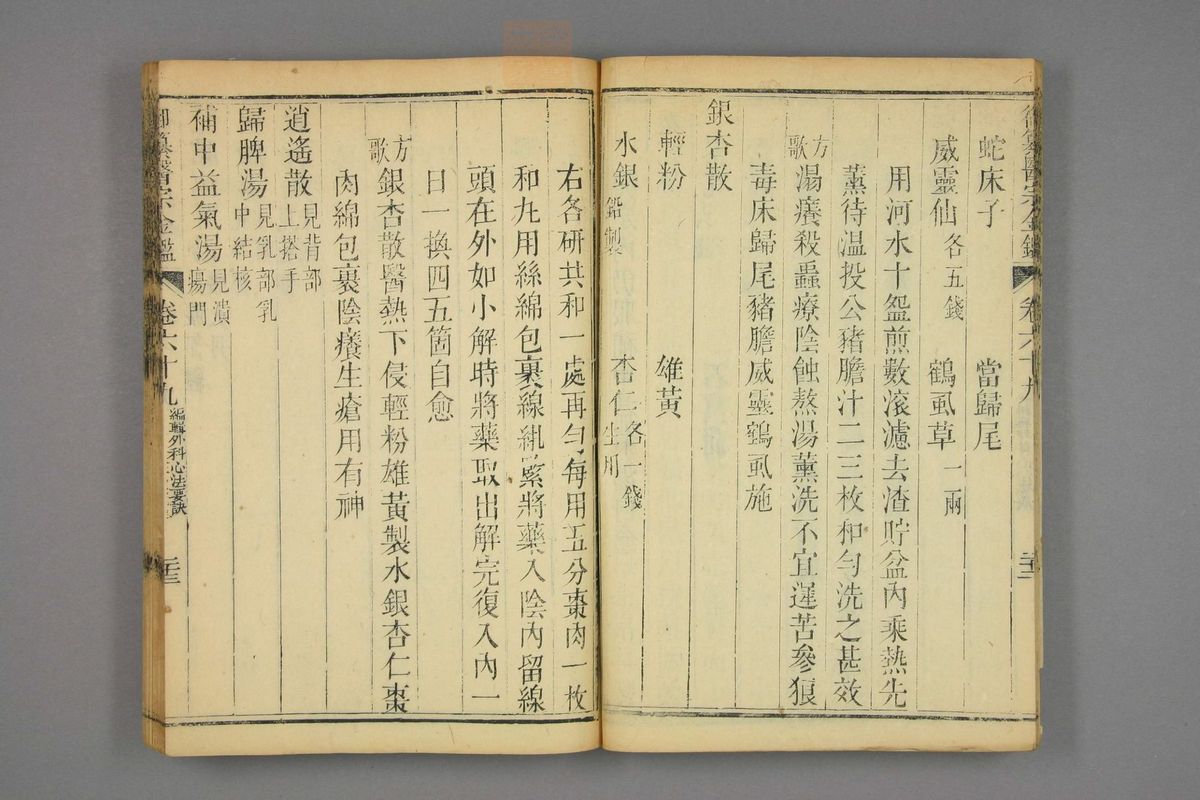 御纂醫宗金鑑
卷六十九
二十三
蛇床子 當歸尾
威靈仙 各五錢 鶴虱草 一兩
用河水十盌煎數滾濾去渣貯盆內乘熱先
薰待溫投公豬膽汁二三枚和勻洗之甚效
方歌 溻癢殺蟲療陰蝕熬湯薰洗不宜遲苦參狼
毒床歸尾豬膽威靈鶴虱施
銀杏散
輕粉 雄黃
水銀 鉛製 杏仁 各一錢 生用
右各研共和一處再勻每用五分棗肉一枚
和丸用絲綿包裹線紮緊將藥入陰內留線
頭在外如小解時將藥取出解完復入內一
日一換四五箇自愈
方歌 銀杏散醫熱下侵輕粉雄黃製水銀杏仁棗
肉綿包裹陰癢生瘡用有神
逍遙散 見背部上搭手
歸脾湯 見乳部乳中結核
補中益氣湯 見潰瘍門
御纂醫宗金鑑
卷六十九
編輯外科心法要訣
二十三